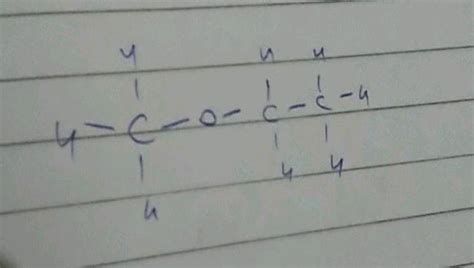 H H H
H - C - O - C - C - H
H H H